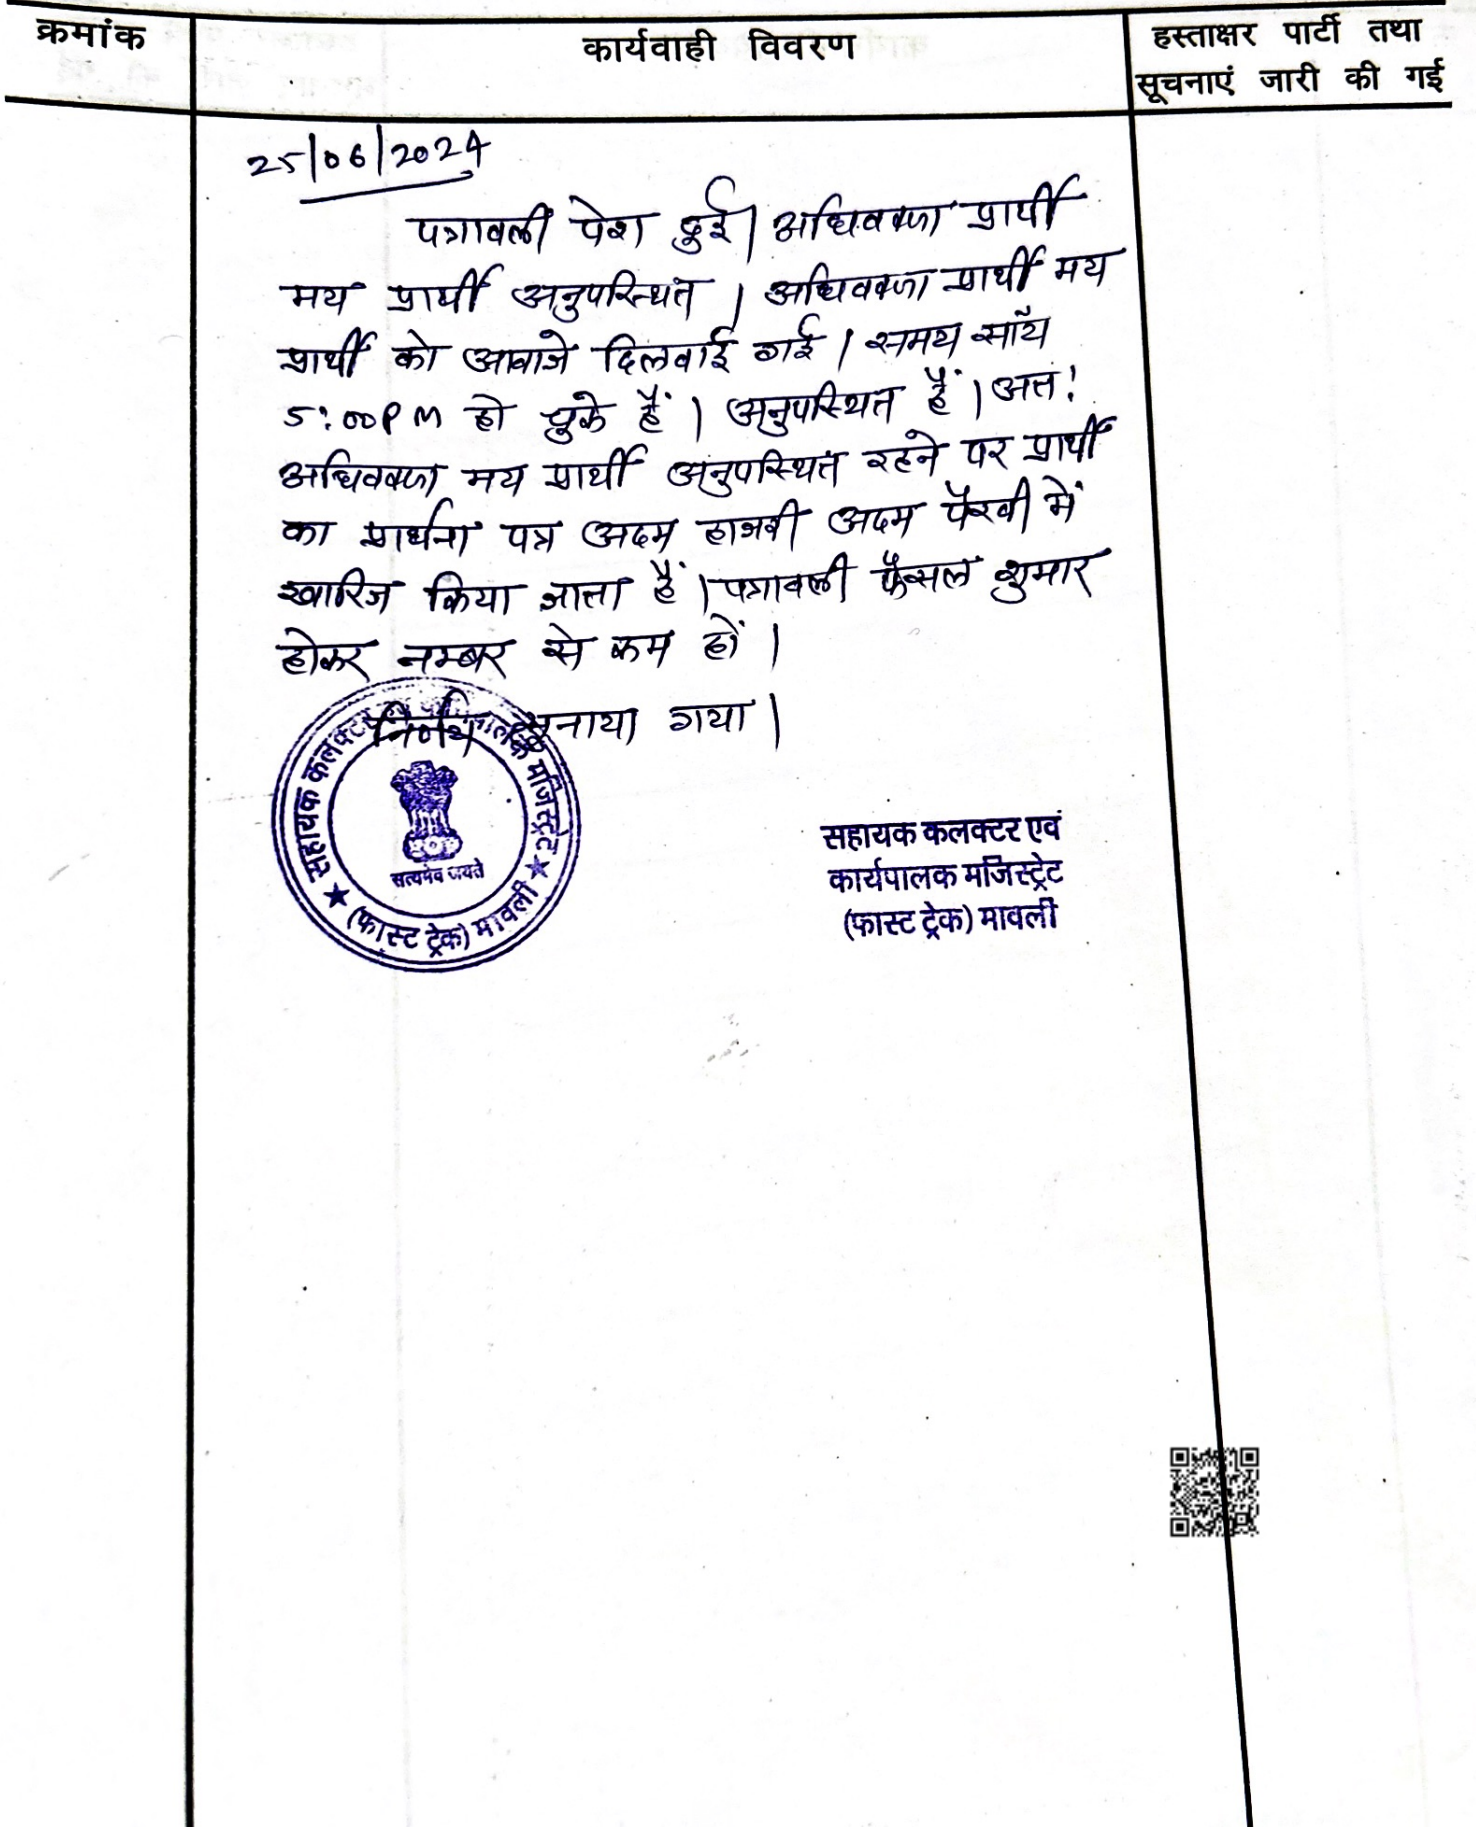 क्रमांक
कार्यवाही विवरण
हस्ताक्षर पार्टी तथा
सूचनाएं जारी की गई
25/06/2024
पत्रावली पेश हुई। अधिवक्ता प्रार्थी
मय प्रार्थी अनुपस्थित । अधिवक्ता प्रार्थी मय
प्रार्थी को आवाजे दिलवाई गई । समय साँय
5:00 PM हो चुके हैं । अनुपस्थित हैं । अत:
अधिवक्ता मय प्रार्थी अनुपस्थित रहने पर प्रार्थी
का प्रार्थना पत्र अदम हाजरी अदम पैरवी में
खारिज किया जाता हैं । पत्रावली फैसल शुमार
होकर नम्बर से कम हों ।
निर्णय सुनाया गया ।
सहायक कलक्टर एवं कार्यपालक मजिस्ट्रेट
सत्यमेव जयते
★ (फास्ट ट्रेक) मावली ★
सहायक कलक्टर एवं
कार्यपालक मजिस्ट्रेट
(फास्ट ट्रेक) मावली